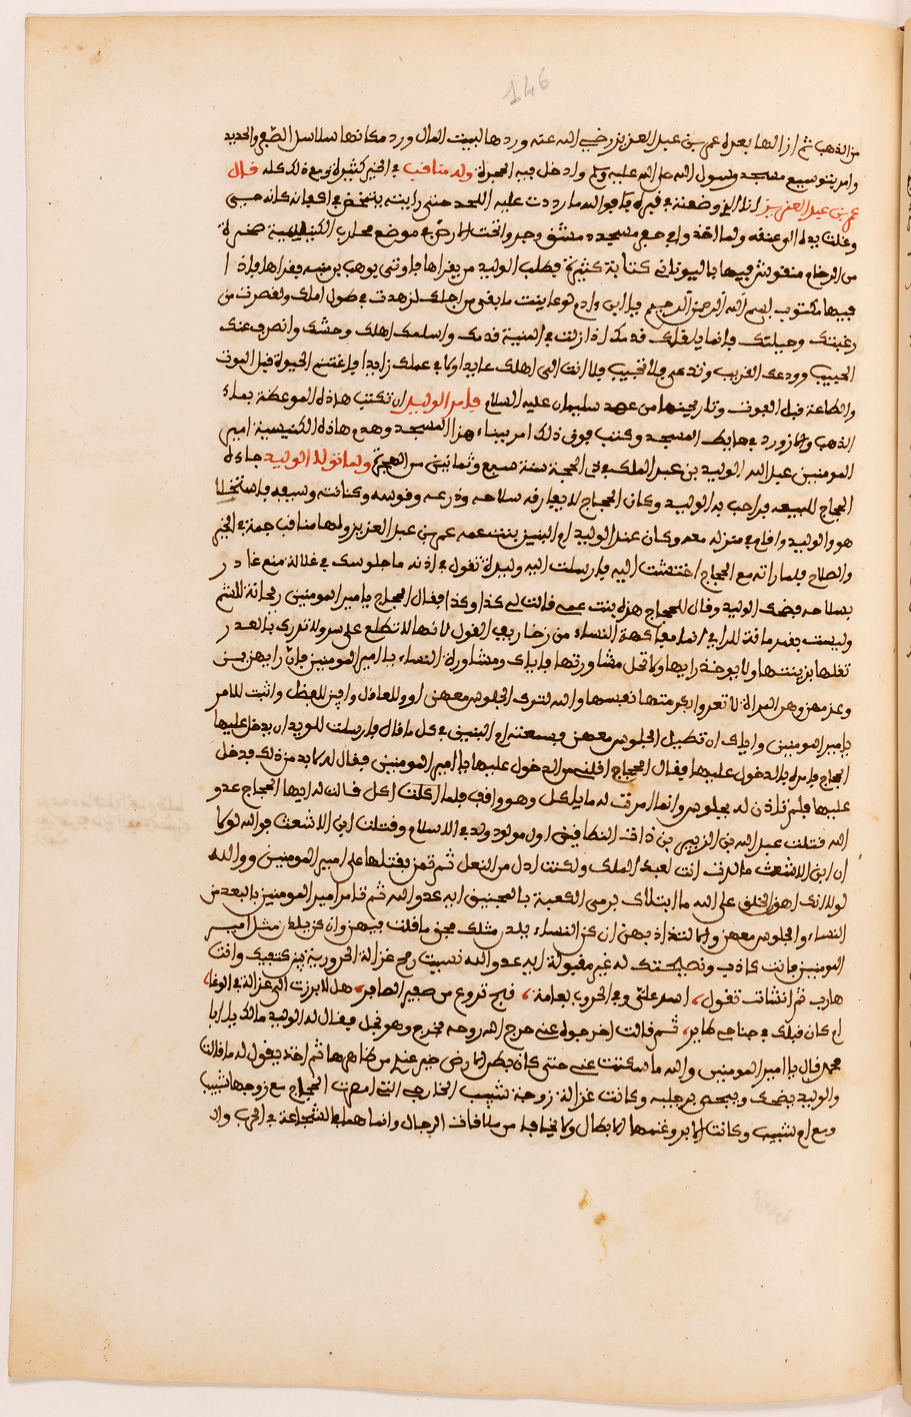 146
من الذهب ثم ازالها بعده عمر بن عبد العزيز رضي الله عنه وردها لبيت المال ورد مكانها سلاسل الصفر والحديد
وامر بتوسيع مسجد رسول الله صلى الله عليه وسلم وادخل فيه الحجرة وله مناقب في الخير كثيرة ومع ذلك كله قال
عمر بن عبد العزيز انا الذي وضعته في قبره فوالله ما رددت عليه اللحد حتى رايته يتخض في اكفانه كانه حبس
وغلت يداه الى عنقه ولما اخذ في حفر مسجد دمشق وجدوا تحت الارض في موضع محراب الكنيسة صخرة
من الرخام منقوش فيها باليونانى كتابة كثيرة فطلب الوليد من يقراها فاوتي بوهب بن منبه فقراها فاذا
فيها مكتوب بسم الله الرحمن الرحيم يا ابن ادم لو عاينت ما بقي من اجلك لزهدت في طول املك ولقصرت من
رغبتك وحيلتك وانما يلقاك قدمك اذا زلت في المنية قدمك واسلمك اهلك وحشمك وانصرف عنك
الحبيب وودعك القريب وتدعى فلا تجيب فلا انت الى اهلك عايد ولا في عملك زايد فاغتنم الحيوة قبل الموت
والطاعة قبل الفوت وتاريخها من عهد سليمان عليه السلام فامر الوليد ان تكتب هذه الموعظة بماء
الذهب واللازورد في حايط المسجد وكتب فوق ذلك امر ببناء هذا المسجد وهدم هاذه الكنيسة امير
المومنين عبد الله الوليد بن عبد الملك في ذي الحجة سنة سبع وثمانين من الهجرة ولما تولى الوليد جاءه
الحجاج للبيعه فرحب به الوليد وكان الحجاج لا يفارقه سلاحه ودرعه وقوسه وكنانته وسيفه فاستخلا
هو والوليد واقام في منزله معه وكان عند الوليد ام البنين بنت عمه عمر بن عبد العزيز ولها مناقب جمة في الخير
والصلاح فلما راته مع الحجاج اغتضت اليه فارسلت اليه وليدة تقول في اذنه ما جلوسك في غلالة مع غادر
بسلاحه فضحك الوليد وقال للحجاج هذه بنت عمي قالت لي كذا وكذا فقال الحجاج يا امير المومنين ريحانة للشم
وليست بقهرمانة للراي انما مفاكهة النساء من زخاريف القول لانها لا تطلع على سر ولا تدرى بالغدر
تغلها بزينتها ولا يوخذ رايها ولا تقل مشاورتها فاياك ومشاورة النساء يا امير المومنين فان رايهن يسن
وعزمهن وهن المراة لا تعدوا بكرمتها نفسها والله لترك الجلوس معهن اولى للعاقل واوفر للعظل واثبت للامر
يا امير المومنين واياك ان تطيل الجلوس معهن فسمعته ام البنين في كل ما قال فارسلت للوليد ان يدخل عليها
الحجاج فامره بالدخول عليها فقال الحجاج اقلني من الدخول عليها يا امير المومنين فقال له لا بد من ذلك فدخل
عليها فلم تاذن له بجلوس وانما امرت له ما ياكل وهو واقف فلما اكلت اكل قالت له ايها الحجاج عدو
الله قتلت عبد الله بن الزبير بن ذات النطاقين اول مولود ولد في الاسلام وقتلت ابن الاشعث فوالله لولا
ان ابن الاشعث ما انت لعبد الملك ولكنت اذل من النعل ثم تمن بقتلها على امير المومنين ووالله
لولا انك اهون الخلق على الله ما ابتلاك برمي الكعبة بالمجنيق ايه عدو الله ثم تامر امير المومنين بالبعد من
النساء والجلوس معهن والالتذاذ بهن ان كن النساء يلدن مثلك فحق ما قلت فيهن وان كن يلدن مثل امير
المومنين فانت كاذب ونصيحتك له غير مقبولة ايه عدو الله نسيت رمح غزالة الحرورية بين كتفيك وانت
هارب ثم انشات تقول، اسد علي وفي الحروب نعامة، فتج تروع من صفير الصافر، هل لا برزت الى غزالة في الوغا،
ام كان قبلك في جناح طاير، ثم قالت اخرجوه عنى حرج الله روحه فخرج وهو خجل فقال له الوليد مالك يا ابا
محمد قال يا امير المومنين والله ما سكتت عني حتى كان بطن الارض خير عندي من ظاهرها ثم اخذ يقول له ما قالت
والوليد يضحك ويفحص برجليه وكانت غزالة زوجة شبيب الخارجي التى امصرت الحجاج مع زوجها شبيب
ومع ام شبيب وكانت ابرو عنها الابطال ولا تخافا من ملاقات الرجال وانما هما في الشجاعة في الحرب وان